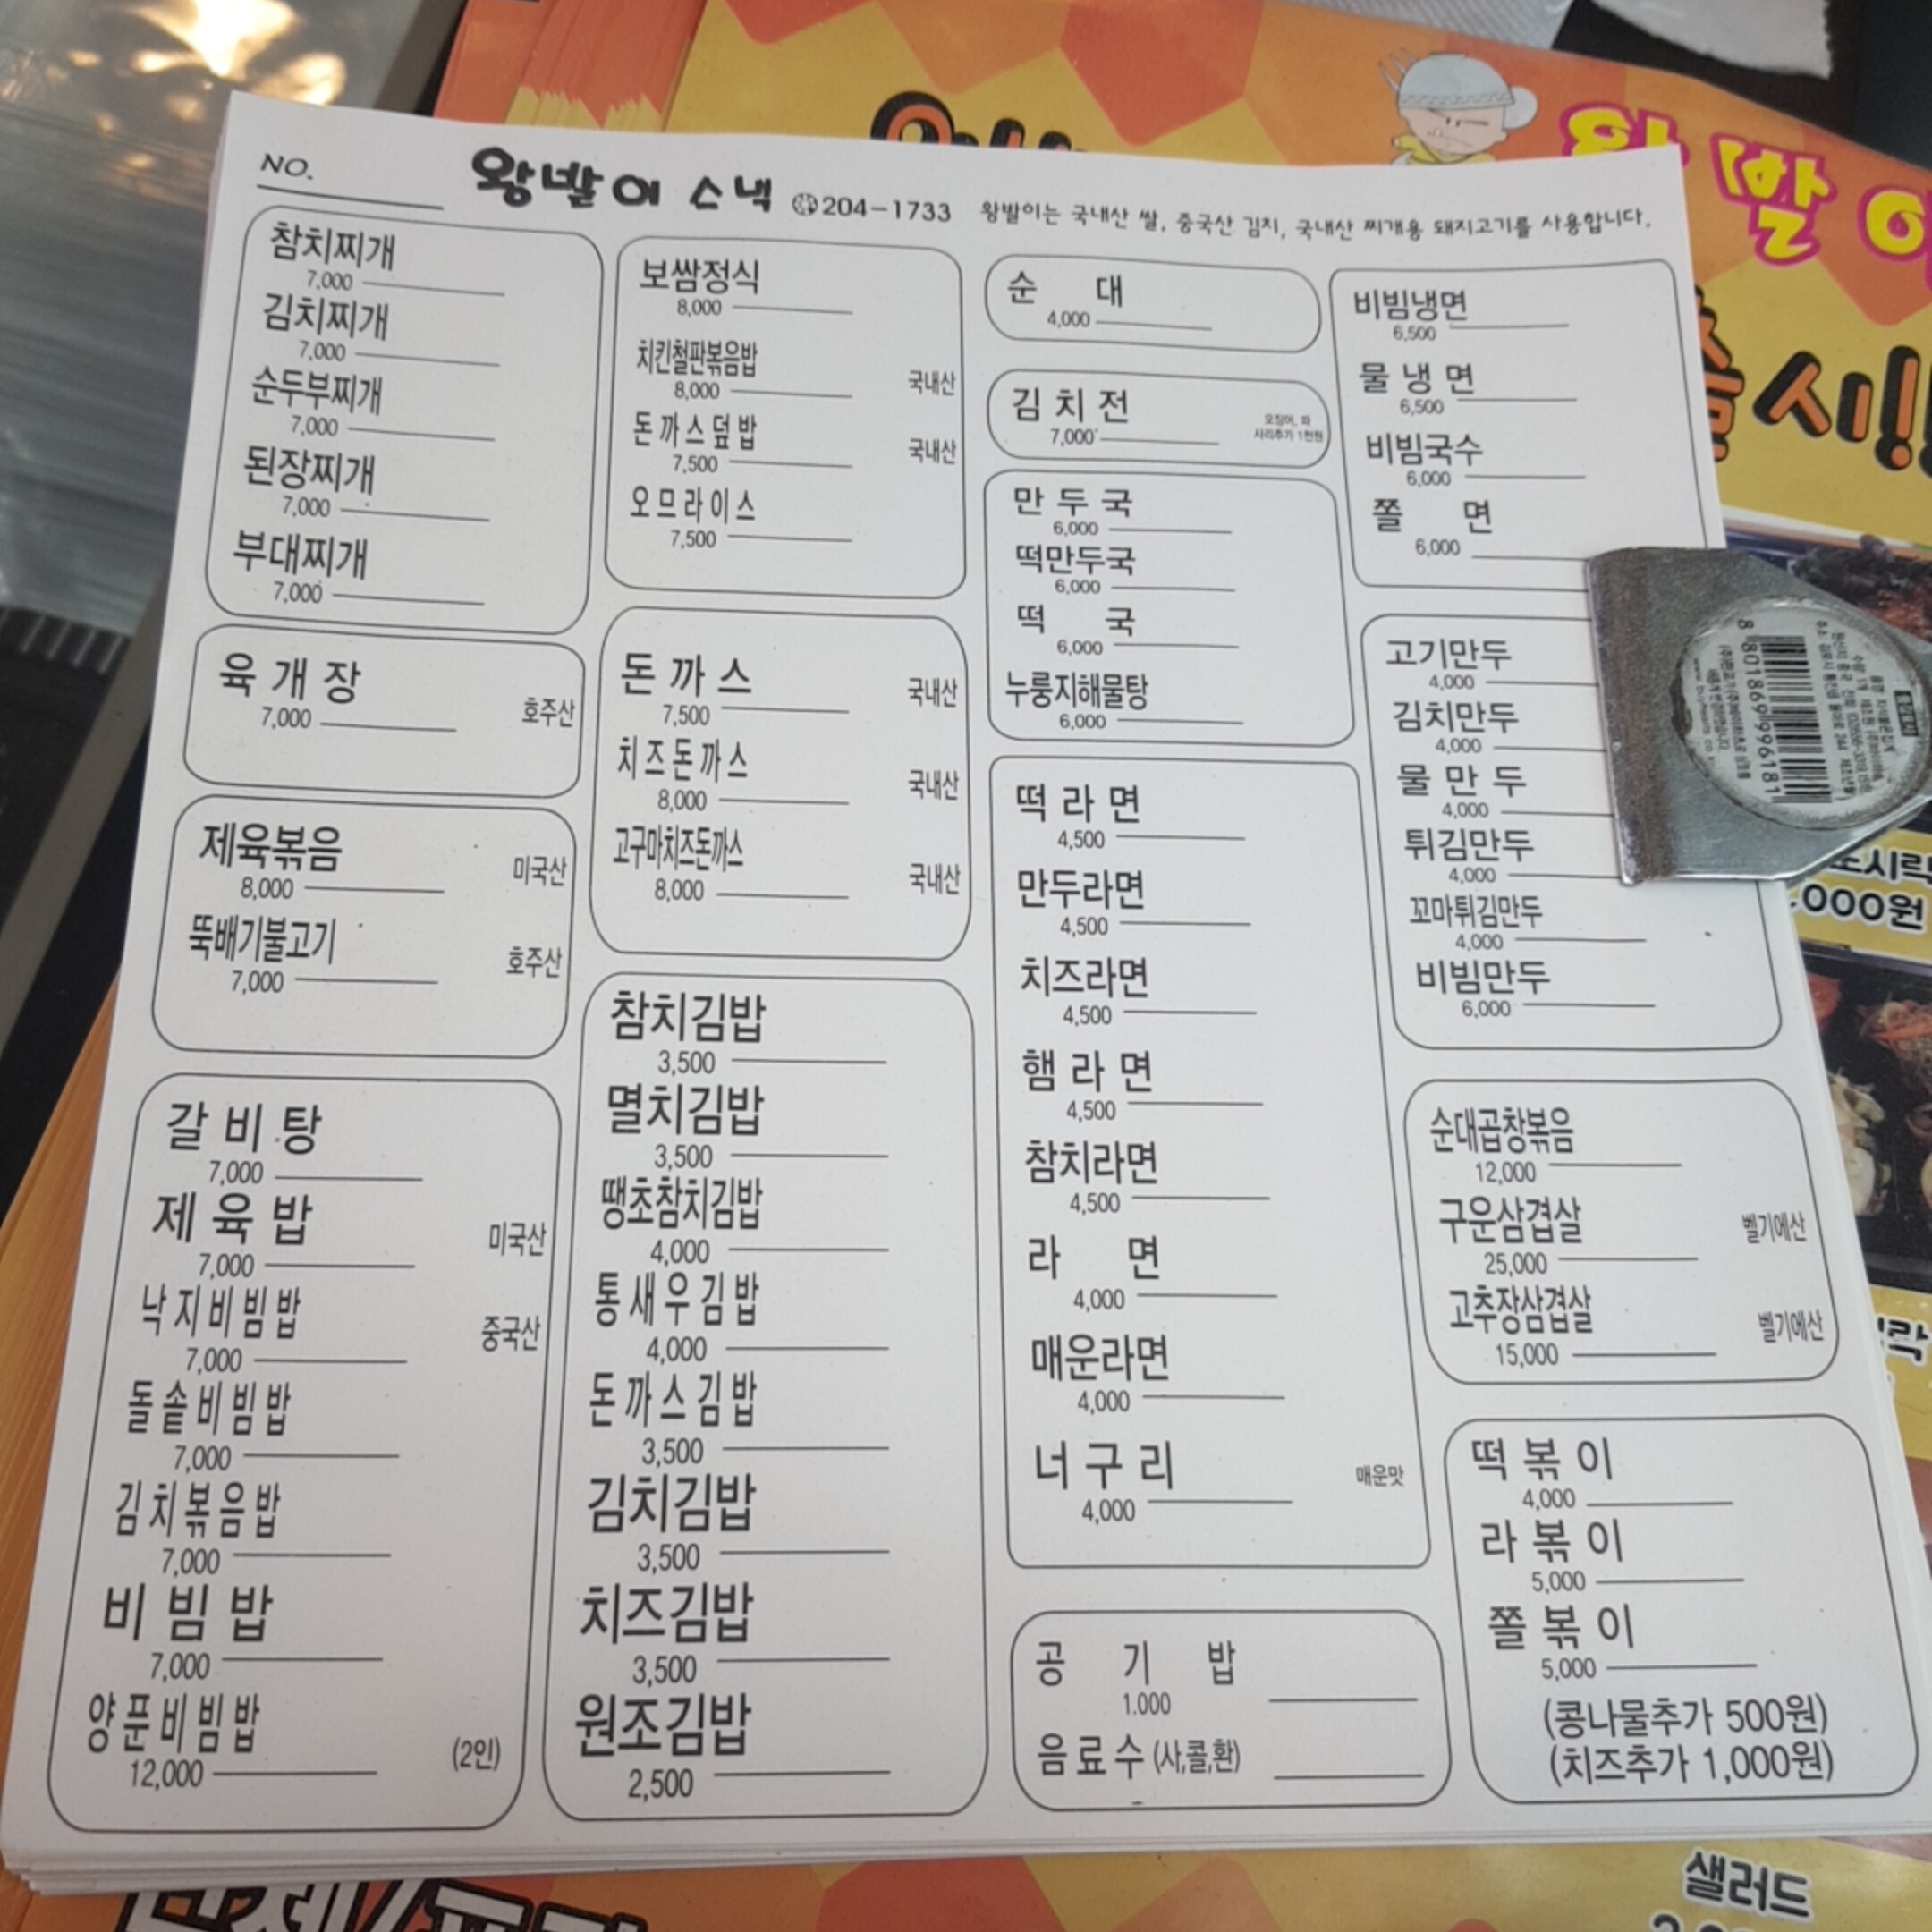 NO.
왕발이 스낵 ☎204-1733 왕발이는 국내산 쌀, 중국산 김치, 국내산 찌개용 돼지고기를 사용합니다.
참치찌개
7,000
김치찌개
7,000
순두부찌개
7,000
된장찌개
7,000
부대찌개
7,000
육개장
7,000 호주산
제육볶음
8,000 미국산
뚝배기불고기
7,000 호주산
갈비탕
7,000
제육밥
7,000 미국산
낙지비빔밥
7,000 중국산
돌솥비빔밥
7,000
김치볶음밥
7,000
비빔밥
7,000
양푼비빔밥
12,000 (2인)
보쌈정식
8,000
치킨철판볶음밥
8,000 국내산
돈까스덮밥
7,500 국내산
오므라이스
7,500
돈까스
7,500 국내산
치즈돈까스
8,000 국내산
고구마치즈돈까스
8,000 국내산
참치김밥
3,500
멸치김밥
3,500
땡초참치김밥
4,000
통새우김밥
4,000
돈까스김밥
3,500
김치김밥
3,500
치즈김밥
3,500
원조김밥
2,500
순대
4,000
김치전
7,000
오징어, 파
사리추가 1천원
만두국
6,000
떡만두국
6,000
떡국
6,000
누룽지해물탕
6,000
떡라면
4,500
만두라면
4,500
치즈라면
4,500
햄라면
4,500
참치라면
4,500
라면
4,000
매운라면
4,000
너구리
4,000 매운맛
공기밥
1.000
음료수 (사,콜,환)
비빔냉면
6,500
물냉면
6,500
비빔국수
6,000
쫄면
6,000
고기만두
4,000
김치만두
4,000
물만두
4,000
튀김만두
4,000
꼬마튀김만두
4,000
비빔만두
6,000
순대곱창볶음
12,000
구운삼겹살
25,000 벨기에산
고추장삼겹살
15,000 벨기에산
떡볶이
4,000
라볶이
5,000
쫄볶이
5,000
(콩나물추가 500원)
(치즈추가 1,000원)
8 801869 996181
왕발이
시!
도시락
,000원
샐러드